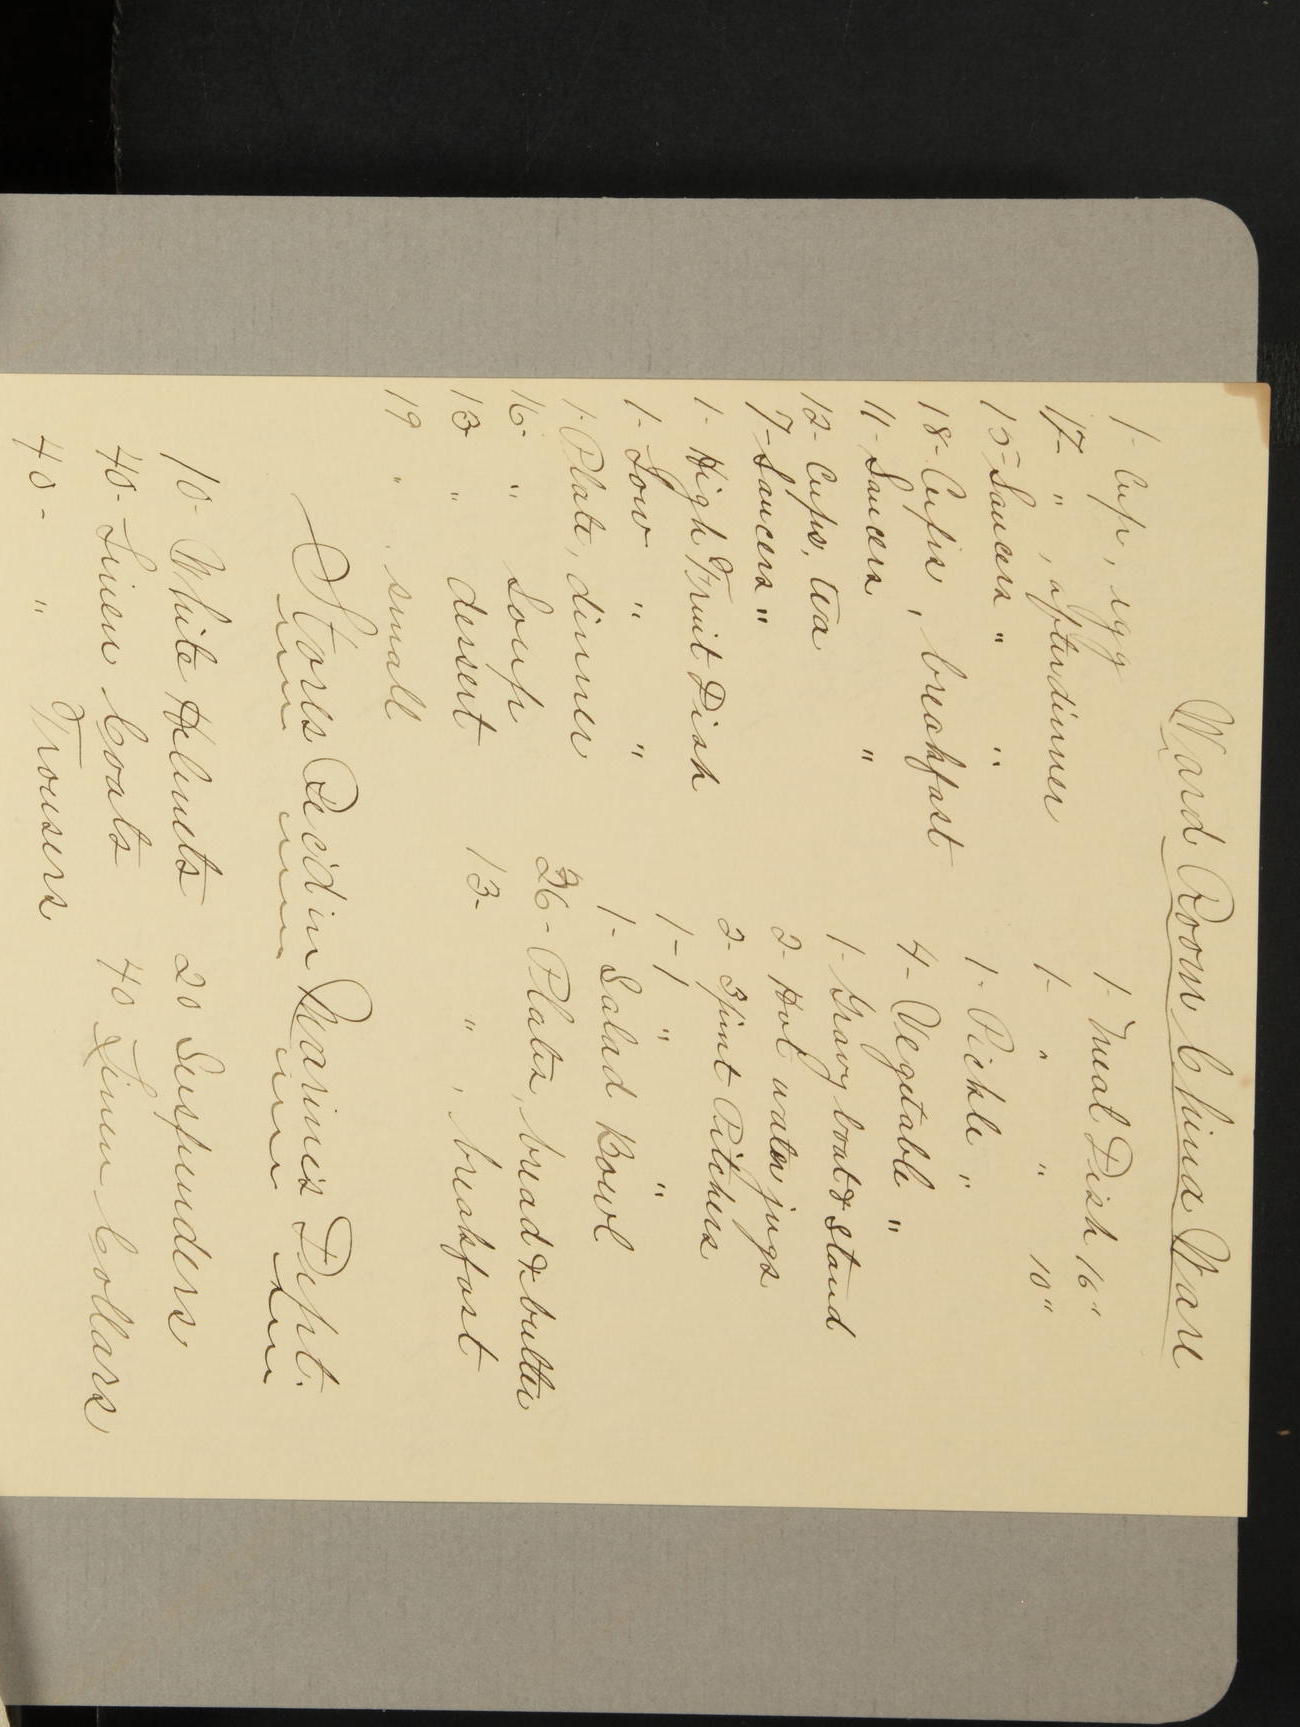 Ward Room China Ware
1- Cup, egg 1- Meat Dish 16"
17- " , after dinner 1- " " 10"
15- Saucers " " 1- Pickle "
18- Cups, breakfast 4- Vegetable "
11- Saucers " 1- Gravy boat & stand
12- Cups, tea 2- Hot water jugs
7- Saucers " 2- 3 pint Pitchers
1- High Fruit Dish 1- 1 " "
1- Low " " 1- Salad Bowl
1- Plate, dinner 26- Plates, bread & butter
16- " Soup 13- " , breakfast
13- " dessert
19 " small
Stores Rec'd in Marine's Dept.
10- White Helmets 20 Suspenders
40- Linen Coats 40 Linen Collars
40- " Trousers